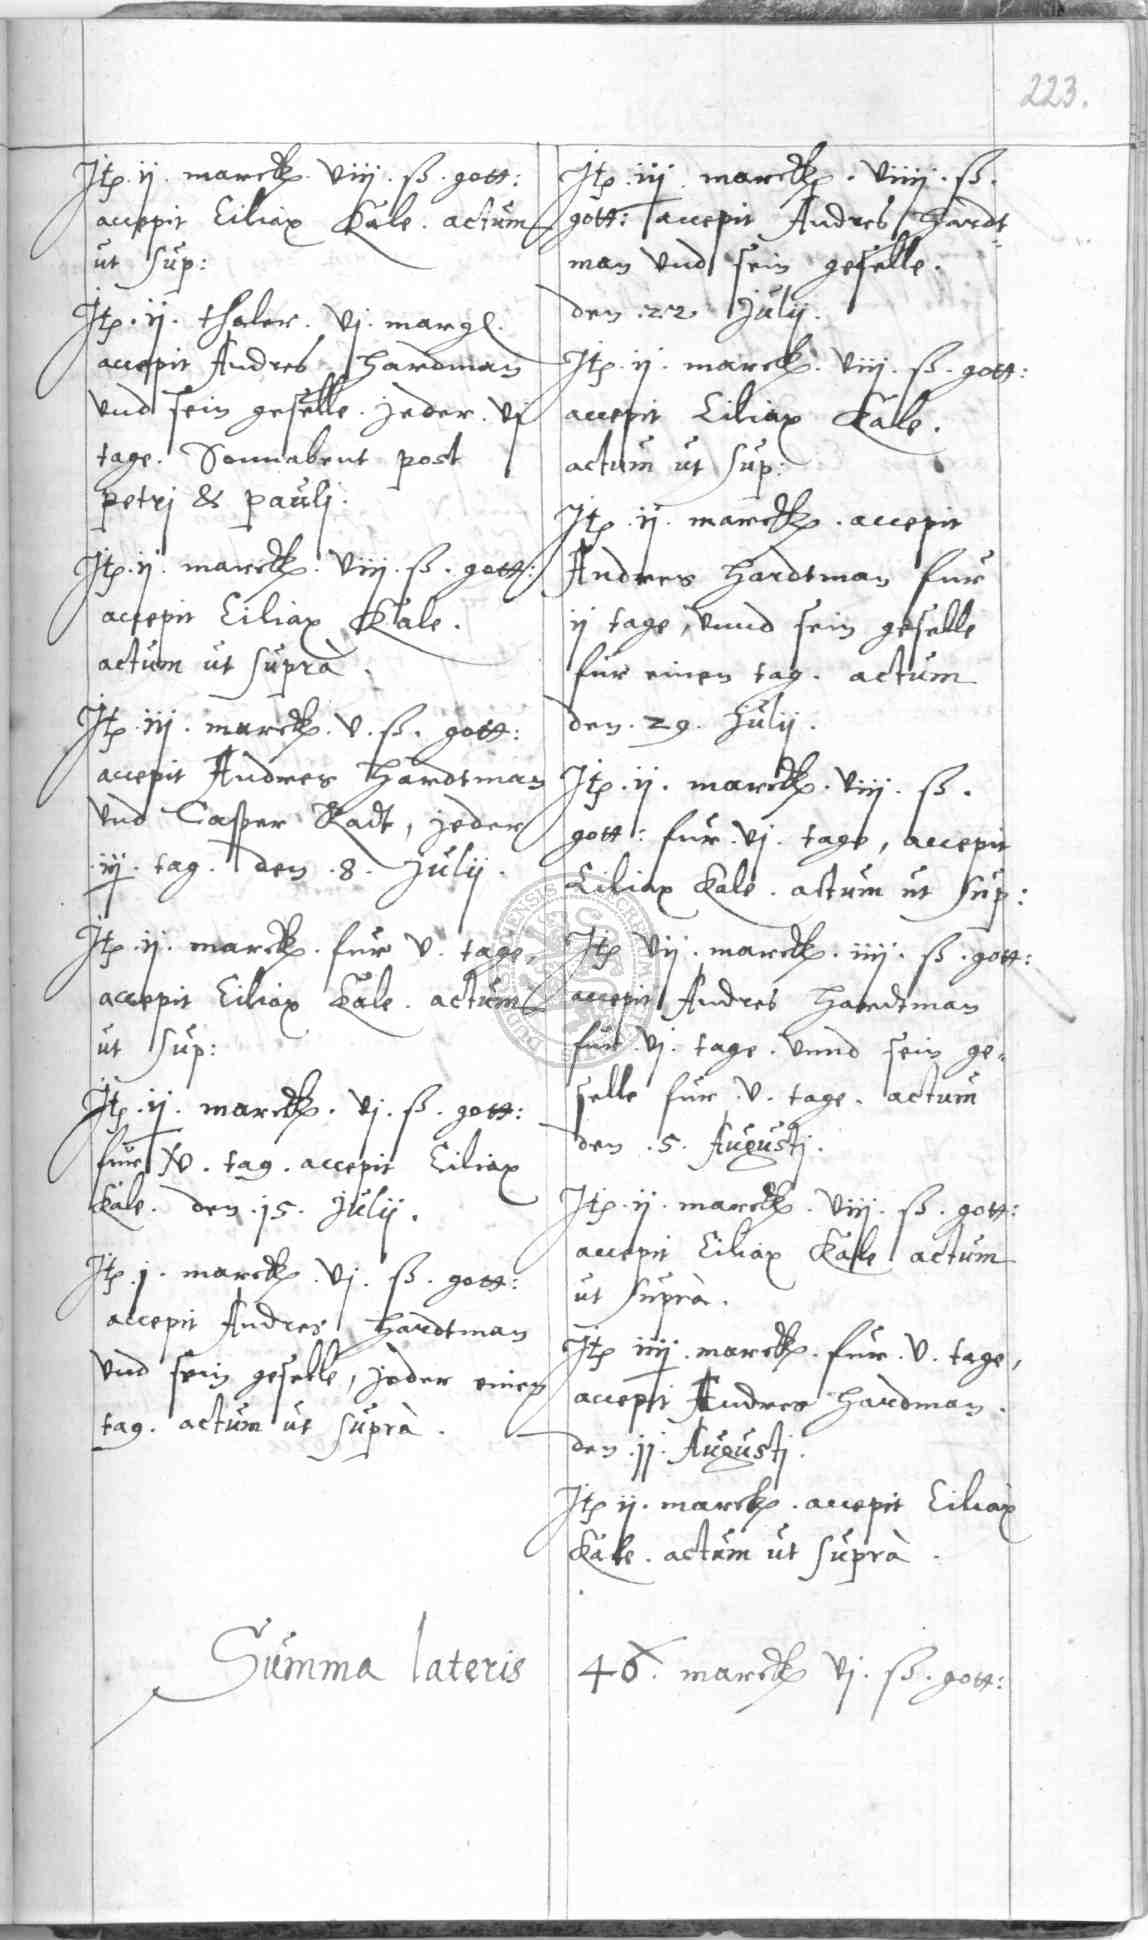 223.
Itp. ij. marck. viij. ß. gott:
accepit Ciliax Kale. actum
ut sup:
Itp. ij. thaler. vj. margl.
accepit Andres Hardman
vnd sein geselle. jeder. vj
tage. Sonnabent post
petrj & paulj.
Itp. ij. marck. viij. ß. gott:
accepit Ciliax Kale.
actum ut suprà.
Itp. iij. marck. v. ß. gott:
accepit Andres Hardtman
vnd Casper Radt, jeder
iij. tag. den. 8. Julij.
Itp. ij. marck. fur v. tage,
accepit Ciliax Kale. actum
ut sup:
Itp. ij. marck. vj. ß. gott:
fur v. tag. accepit Ciliax
Kale. den. 15. Julij.
Itp. j. marck. vj. ß. gott:
accepit Andres Hardtman
vnd sein geselle, jeder einen
tag. actum ut suprà.
Itp. iij. marck. viiij. ß.
gott: accepit Andres Hardt
man vnd sein geselle.
den. 22. Julij.
Itp. ij. marck. viij. ß. gott:
accepit Ciliax Kale.
actum ut sup:
Itp. ij. marck. accepit
Andres Hardtman fur
ij tage, vnnd sein geselle
fur einen tag. actum
den. 29. Julij.
Itp. ij. marck. viij. ß.
gott: fur. vj. tage, accepit
Ciliax Kale. actum ut sup:
Itp vij. marck. iiij. ß. gott:
accepit Andres Hardtman
fur. vj. tage. vnnd sein ge-
selle fur. v. tage. actum
den. 5. Augustj.
Itp. ij. marck. viij. ß. gott:
accepit Ciliax Kale actum
ut suprà.
Itp iiij. marck. fur. v. tage,
accepit Andres Hardman.
den. jj. Augustj.
Itp ij. marck. accepit Ciliax
Kale. actum ut suprà.
Summa lateris 46. marck vj. ß. gott: